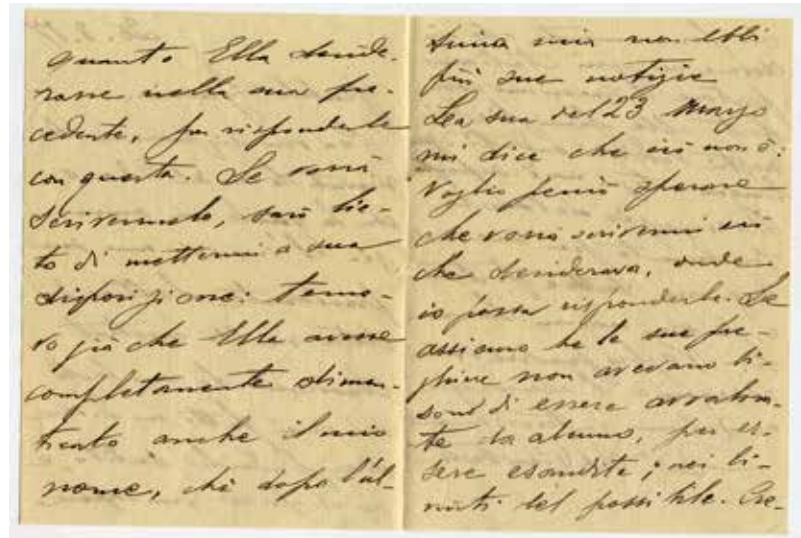 quanto Ella deside-
rasse nella sua pre-
cedente, per risponderle
con questa. Se vorrà
scrivermelo, sarò lie-
to di mettermi a sua
disposizione: teme-
vo già che Ella avesse
completamente dimen-
ticato anche il mio
nome, chè dopo l'ul-
tima mia non ebbi
più sue notizie
La sua del 23 marzo
mi dice che ciò non è:
voglio perciò sperare
che vorrà scrivermi ciò
che desiderava, onde
io possa risponderle. Le
assicuro che le sue pre-
ghiere non avevano bi-
sogno di essere avvalora-
te da alcuno, per es-
sere esaudite, nei li-
miti del possibile. Cre-